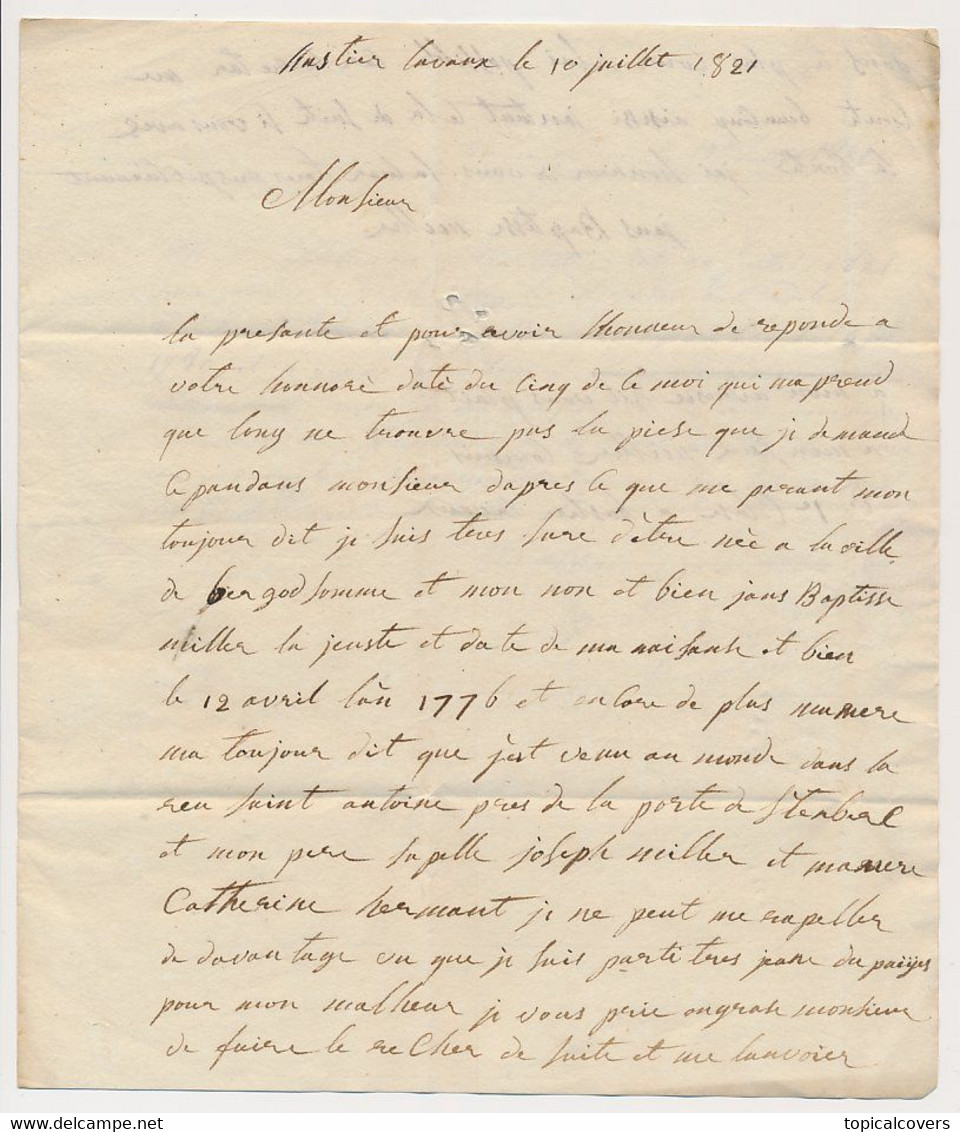 hustier lavaux le 10 juillet 1821
Monsieur
la presante et pour avoir lhonneur de reponde a
votre honnorè datè du Cinq de Ce moi qui maprend
que long ne trouvre pas la piese que je demande
Cepandans monsieur dapres Ce que me parant mon
toujour dit je suis teres sure d'ètre nèe a la ville
de bergodsomme et mon non et bien jans Baptisse
miller la jeuste et date de ma naisanse et bien
le 12 avril làn 1776 et enCore de plus mamere
ma toujour dit que jest venu au monde dans la
reu saint antoine pres de la porte de Stenberc
et mon pere sapelle joseph miller et mamere
Catherine hermant je ne peut me rapeller
de davantage vu que je suis parti tres jeane du paiijes
pour mon malheur je vous prie ongrase monsieur
de faire le reCher de suite et me lanvoier
topicalcovers
https://topicalcovers.delcampe.net